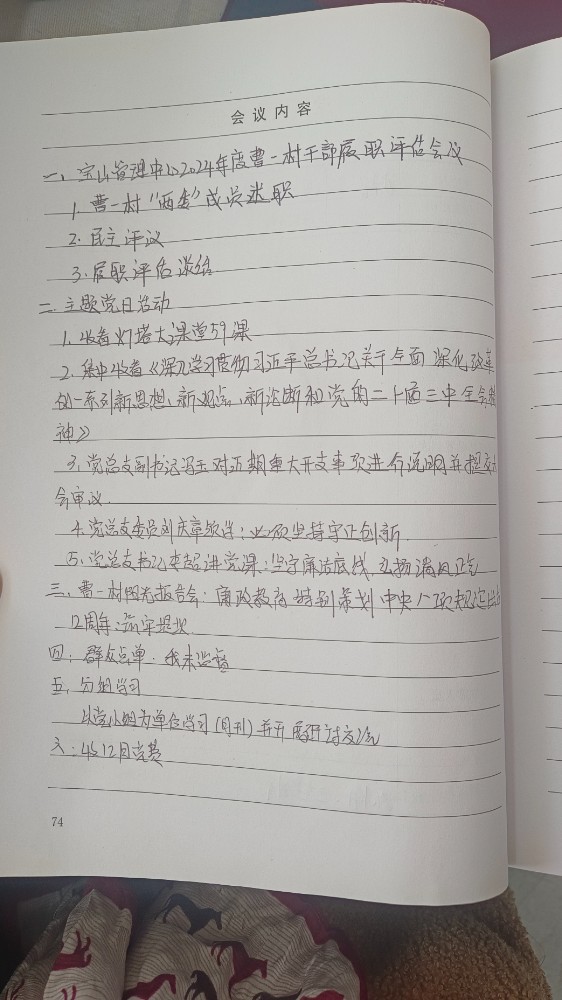 会议内容
一、宝山管理中心2024年度曹一村干部履职评估会议
1. 曹一村"两委"成员述职
2. 民主评议
3. 履职评估谈话
二、主题党日活动
1. 收看灯塔大课堂59课
2. 集中收看《深入学习贯彻习近平总书记关于全面深化改革
的一系列新思想、新观点、新论断和党的二十届三中全会精
神》
3. 党总支副书记冯王对近期重大开支事项进行说明并提交
会审议
4. 党总支委员刘庆章领学:必须坚持守正创新.
5. 党总支书记李超讲党课:坚守廉洁底线 弘扬清风正气
三、曹一村阳光报告会:廉政教育 特别策划 中央八项规定出台
12周年:筑牢堤坝
四、群众点单 我来监督
五、分组学习
以党小组为单位学习(月刊)并开展研讨交流
六:收12月党费
74